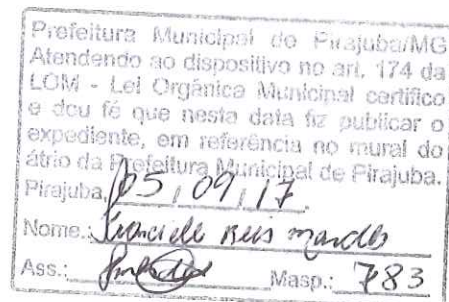 Prefeitura Municipal de Pirajuba/MG
Atendendo ao dispositivo no art. 174 da
LOM - Lei Orgânica Municipal certifico
e dou fé que nesta data fiz publicar o
expediente, em referência no mural do
átrio da Prefeitura Municipal de Pirajuba.
Pirajuba, 05, 09, 17.
Nome.: Franciele Reis Mendes
Ass.: Masp.: 783